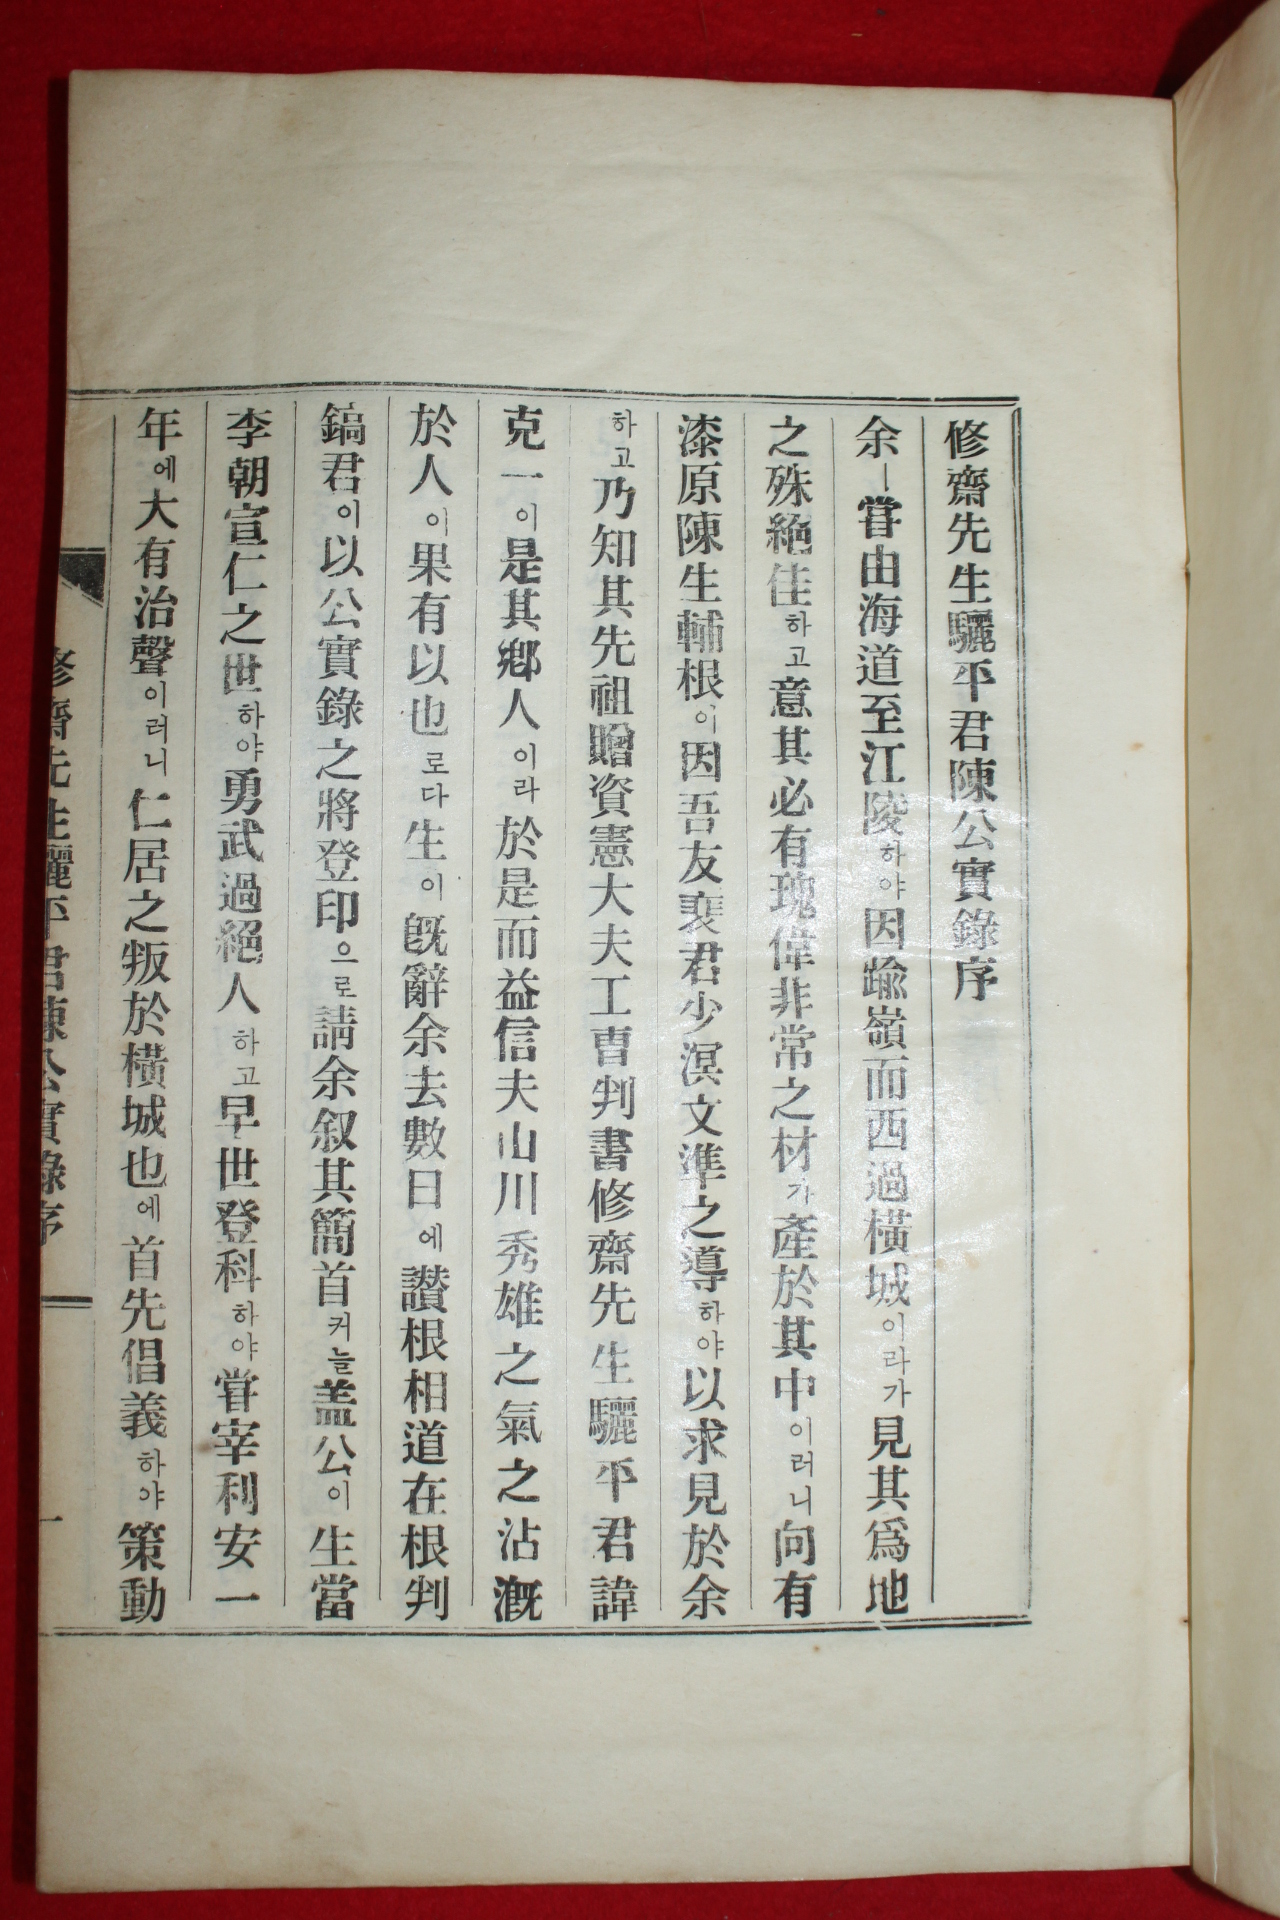 修齋先生驪平君陳公實錄序
余ㅣ甞由海道至江陵하야因踰嶺而西過橫城이라가見其爲地
之殊絶佳하고意其必有瑰偉非常之材가產於其中이러니向有
漆原陳生輔根이因吾友裴君少溟文準之導하야以求見於余
하고乃知其先祖贈資憲大夫工曹判書修齋先生驪平君諱
克一이是其鄕人이라於是而益信夫山川秀雄之氣之沾漑
於人이果有以也로다生이旣辭余去數日에讃根相道在根判
鎬君이以公實錄之將登印으로請余叙其簡首커늘盖公이生當
李朝宣仁之世하야勇武過絕人하고早世登科하야甞宰利安一
年에大有治聲이러니仁居之叛於橫城也에首先倡義하야策動
修齋先生驪平君陳公實錄序 一